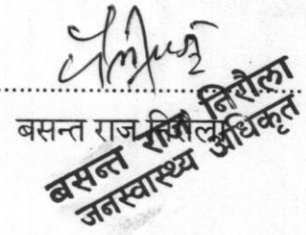 बसन्त राज निरौला
बसन्त राज निरौला
जनस्वास्थ्य अधिकृत